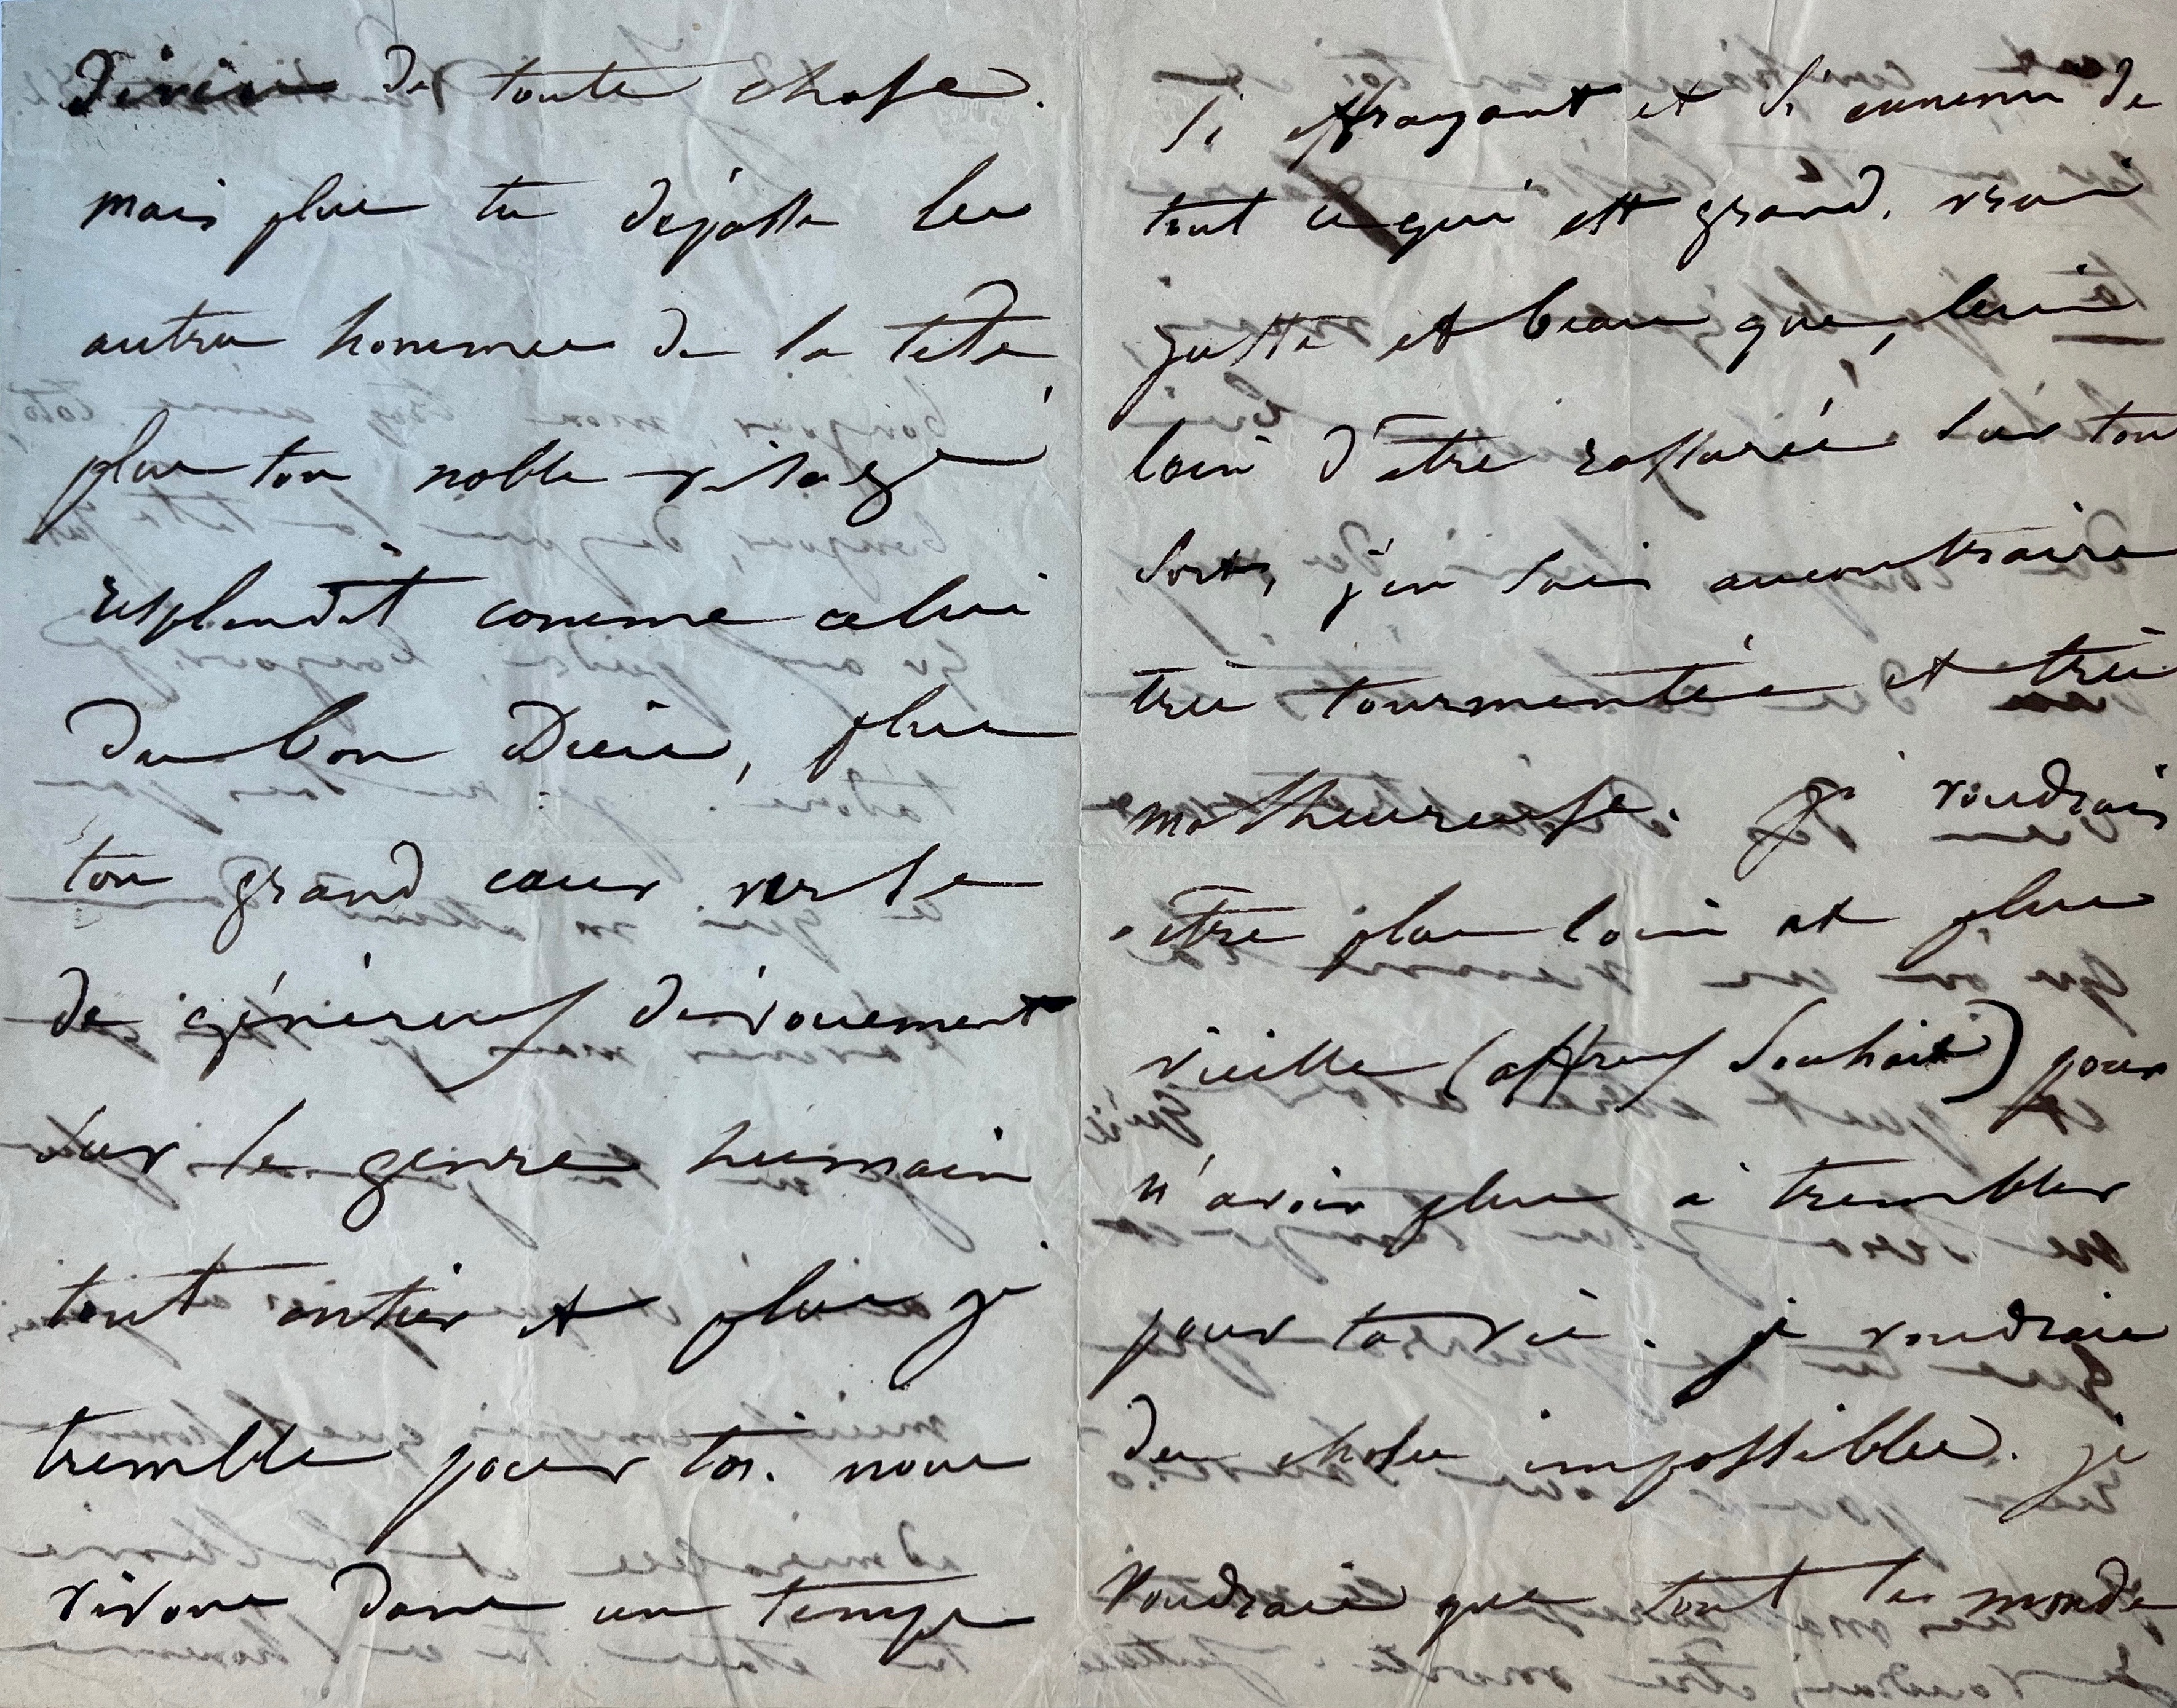 divin de toute chose.
mais plus tu dépasse les
autres hommes de la tête,
plus ton noble visage
resplendit comme celui
du bon Dieu, plus
ton grand cœur verse
de généreux dévouement
sur le genre humain
tout entier et plus je
tremble pour toi. nous
vivons dans un temps
si effrayant et si ennemi de
tout ce qui est grand, vrai
juste et beau que, bien
loin d'être rassurée sur ton
sort, j'en suis aucontraire
très tourmentée et très
malheureuse. Je voudrais
être plus loin et plus
vieille (affreux souhait) pour
n'avoir plus à trembler
pour ta vie. je voudrais
des choses impossibles. je
voudrais que tout le monde